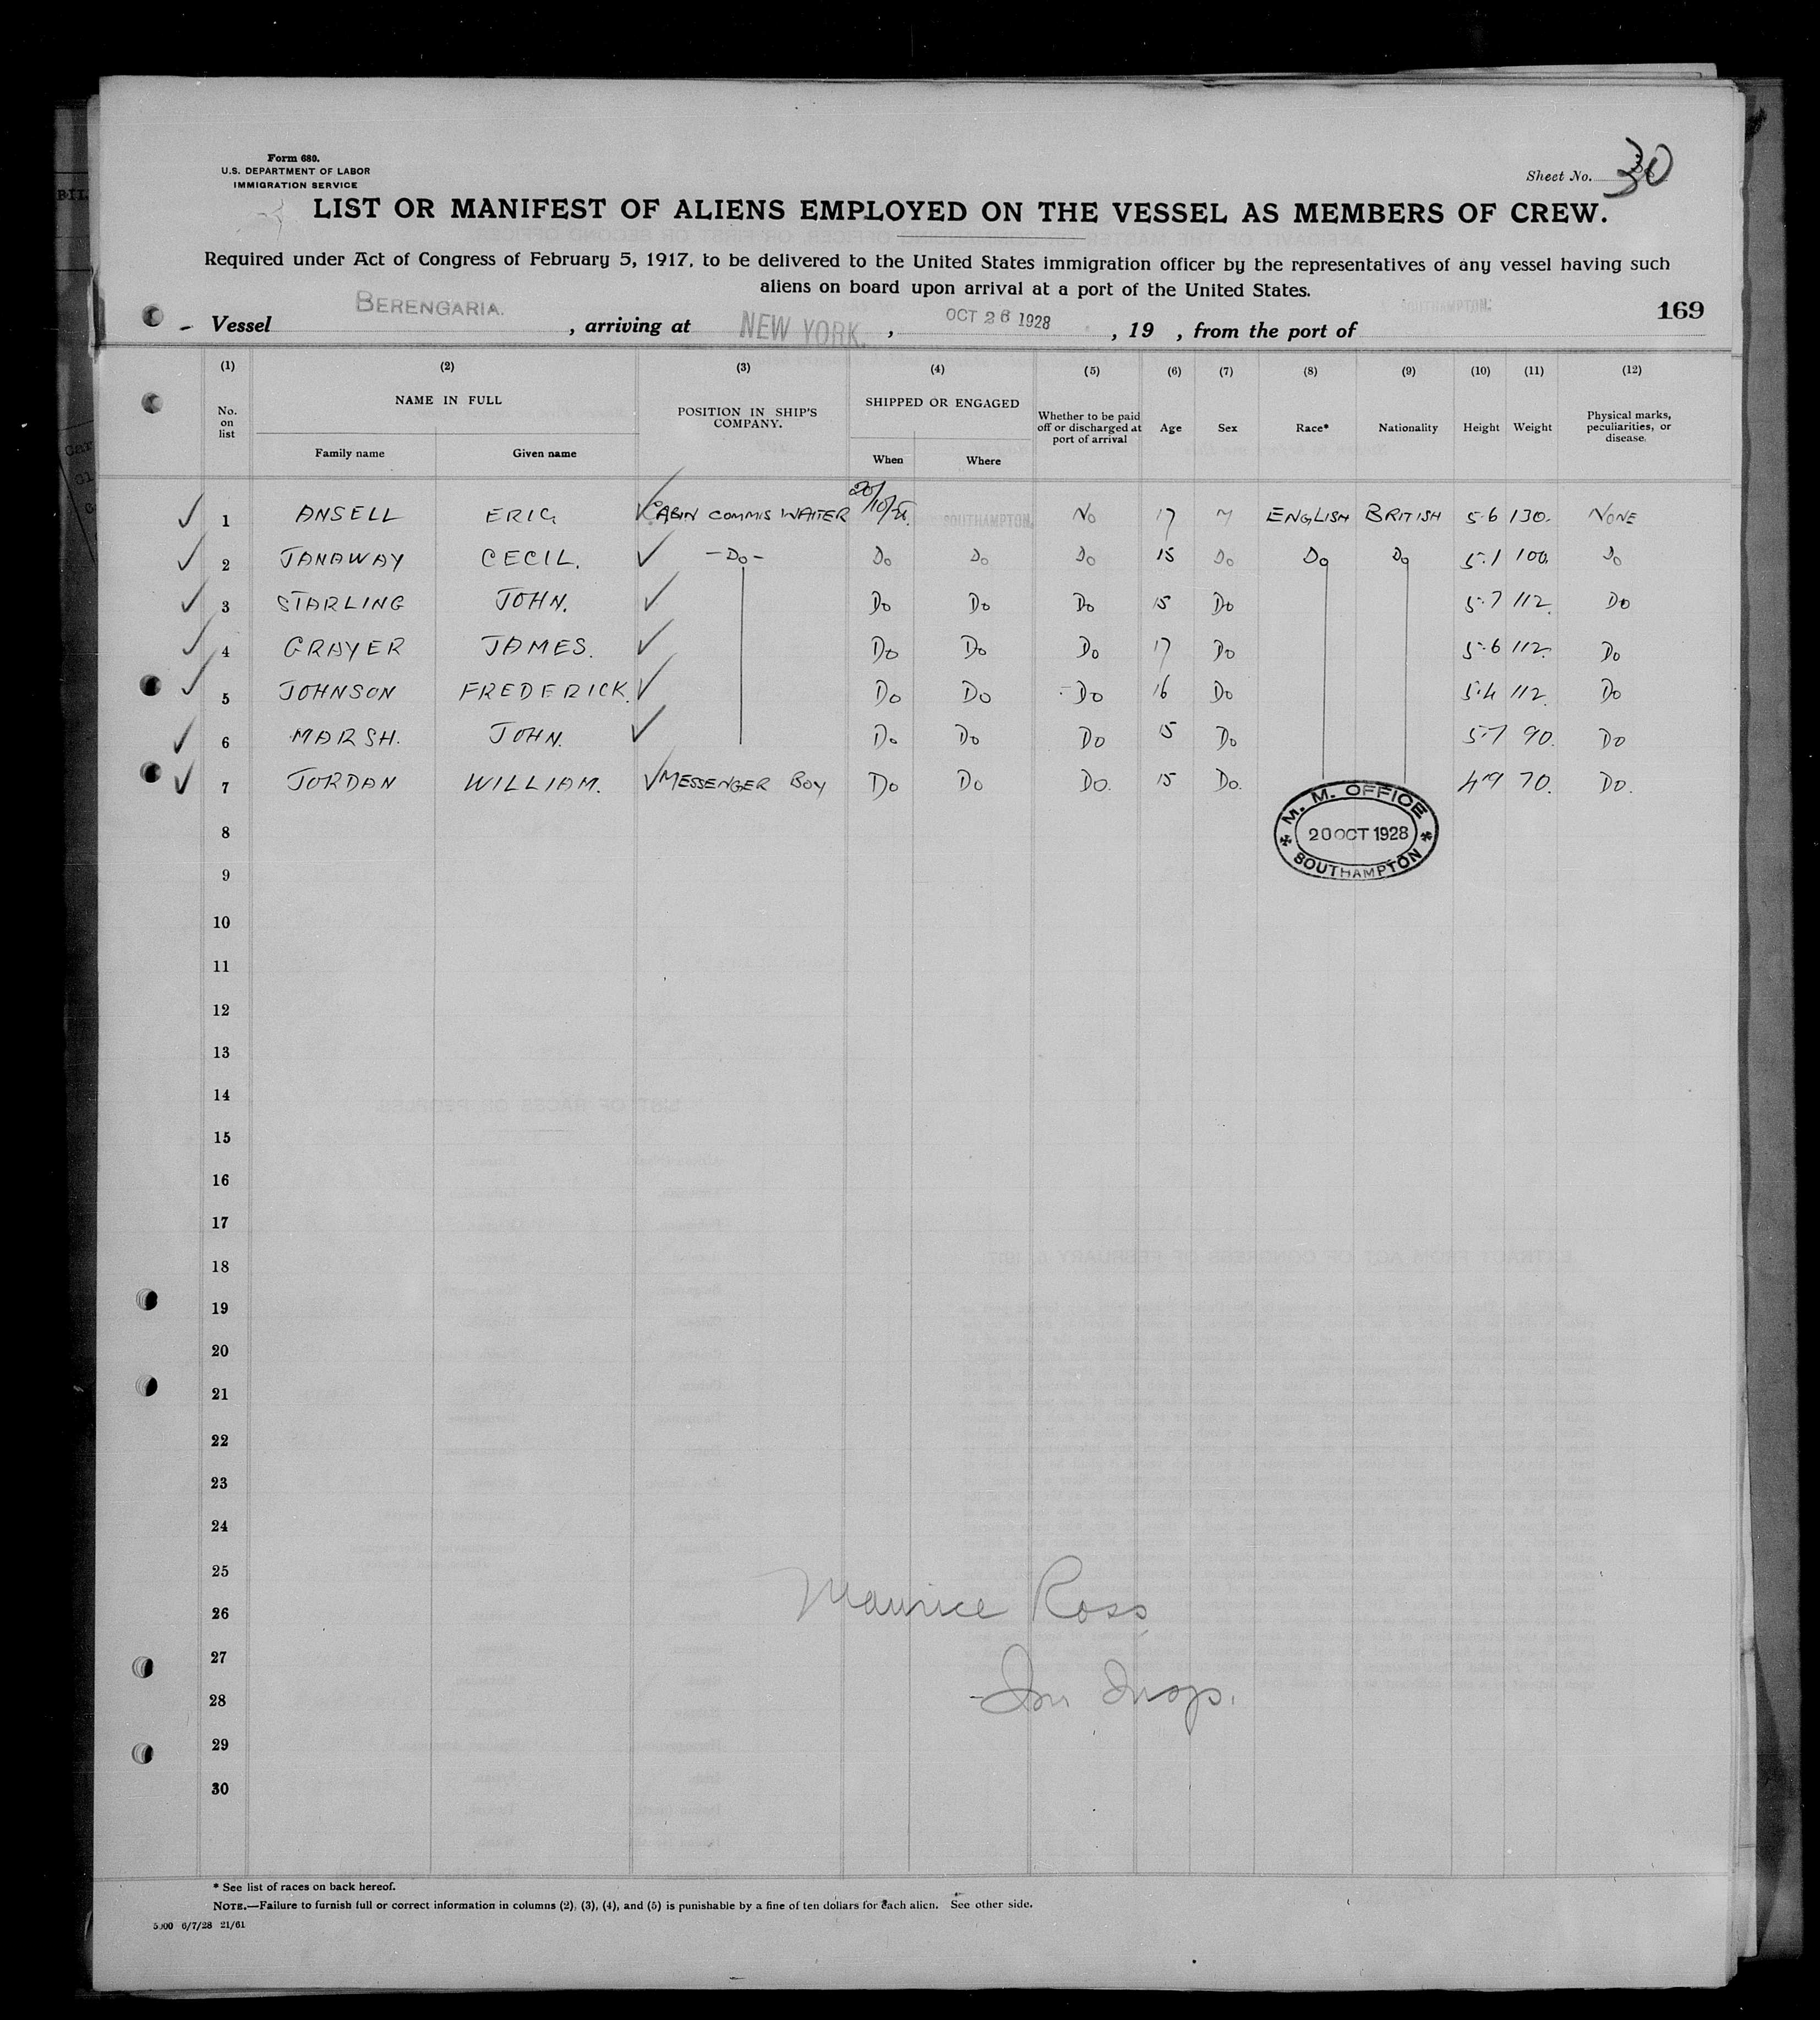 Form 680.
U.S. DEPARTMENT OF LABOR
IMMIGRATION SERVICE
Sheet No. 30
LIST OR MANIFEST OF ALIENS EMPLOYED ON THE VESSEL AS MEMBERS OF CREW.
Required under Act of Congress of February 5, 1917, to be delivered to the United States immigration officer by the representatives of any vessel having such
aliens on board upon arrival at a port of the United States.
169
Vessel BERENGARIA. , arriving at NEW YORK. , OCT 26 1928 , 19 , from the port of SOUTHAMPTON.
(1) (2) (3) (4) (5) (6) (7) (8) (9) (10) (11) (12)
No. on list NAME IN FULL POSITION IN SHIP'S COMPANY. SHIPPED OR ENGAGED Whether to be paid off or discharged at port of arrival Age Sex Race* Nationality Height Weight Physical marks, peculiarities, or disease.
Family name Given name When Where
1 ANSELL ERIC CABIN COMMIS WAITER 20/10/28. SOUTHAMPTON. No 17 M ENGLISH BRITISH 5.6 130. NONE
2 JANAWAY CECIL. - Do - Do Do Do 15 Do Do Do 5.1 100. Do
3 STARLING JOHN. Do Do Do 15 Do 5.7 112. Do
4 GRAYER JAMES. Do Do Do 17 Do 5.6 112. Do
5 JOHNSON FREDERICK. Do Do Do 16 Do 5.4 112. Do
6 MARSH. JOHN. Do Do Do 15 Do 90. Do
7 JORDAN WILLIAM. MESSENGER BOY Do Do Do. 15 Do. 4.9 70. Do.
M. M. OFFICE
20 OCT 1928
SOUTHAMPTON
8
9
10
11
12
13
14
15
16
17
18
19
20
21
22
23
24
25
26 Maurice Ross
27
28 Im Insp.
29
30
* See list of races on back hereof.
NOTE.—Failure to furnish full or correct information in columns (2), (3), (4), and (5) is punishable by a fine of ten dollars for each alien. See other side.
5000 6/7/28 21/61